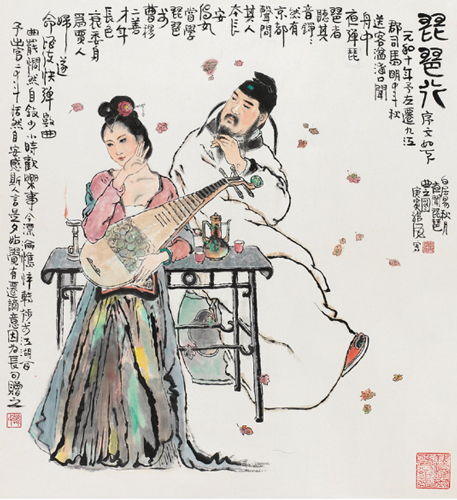 琵琶行 序文如下
元和十年予左遷九江
郡司馬明年秋
送客湓浦口聞
舟中
夜弹琵
琶者
聽其
音錚
然有
京都
聲問
其人
本长
安
倡女
嘗學
琵琶
於穆
曹
二善
才年
長色
衰委身
為賈人
婦遂
命酒使快弹數曲
曲罷憫然自敘少小時歡樂事今漂淪憔悴轉徙於江湖間
予出官二年恬然自安感斯人言是夕始覺有遷謫意因為長句贈之
白居易
庚寅